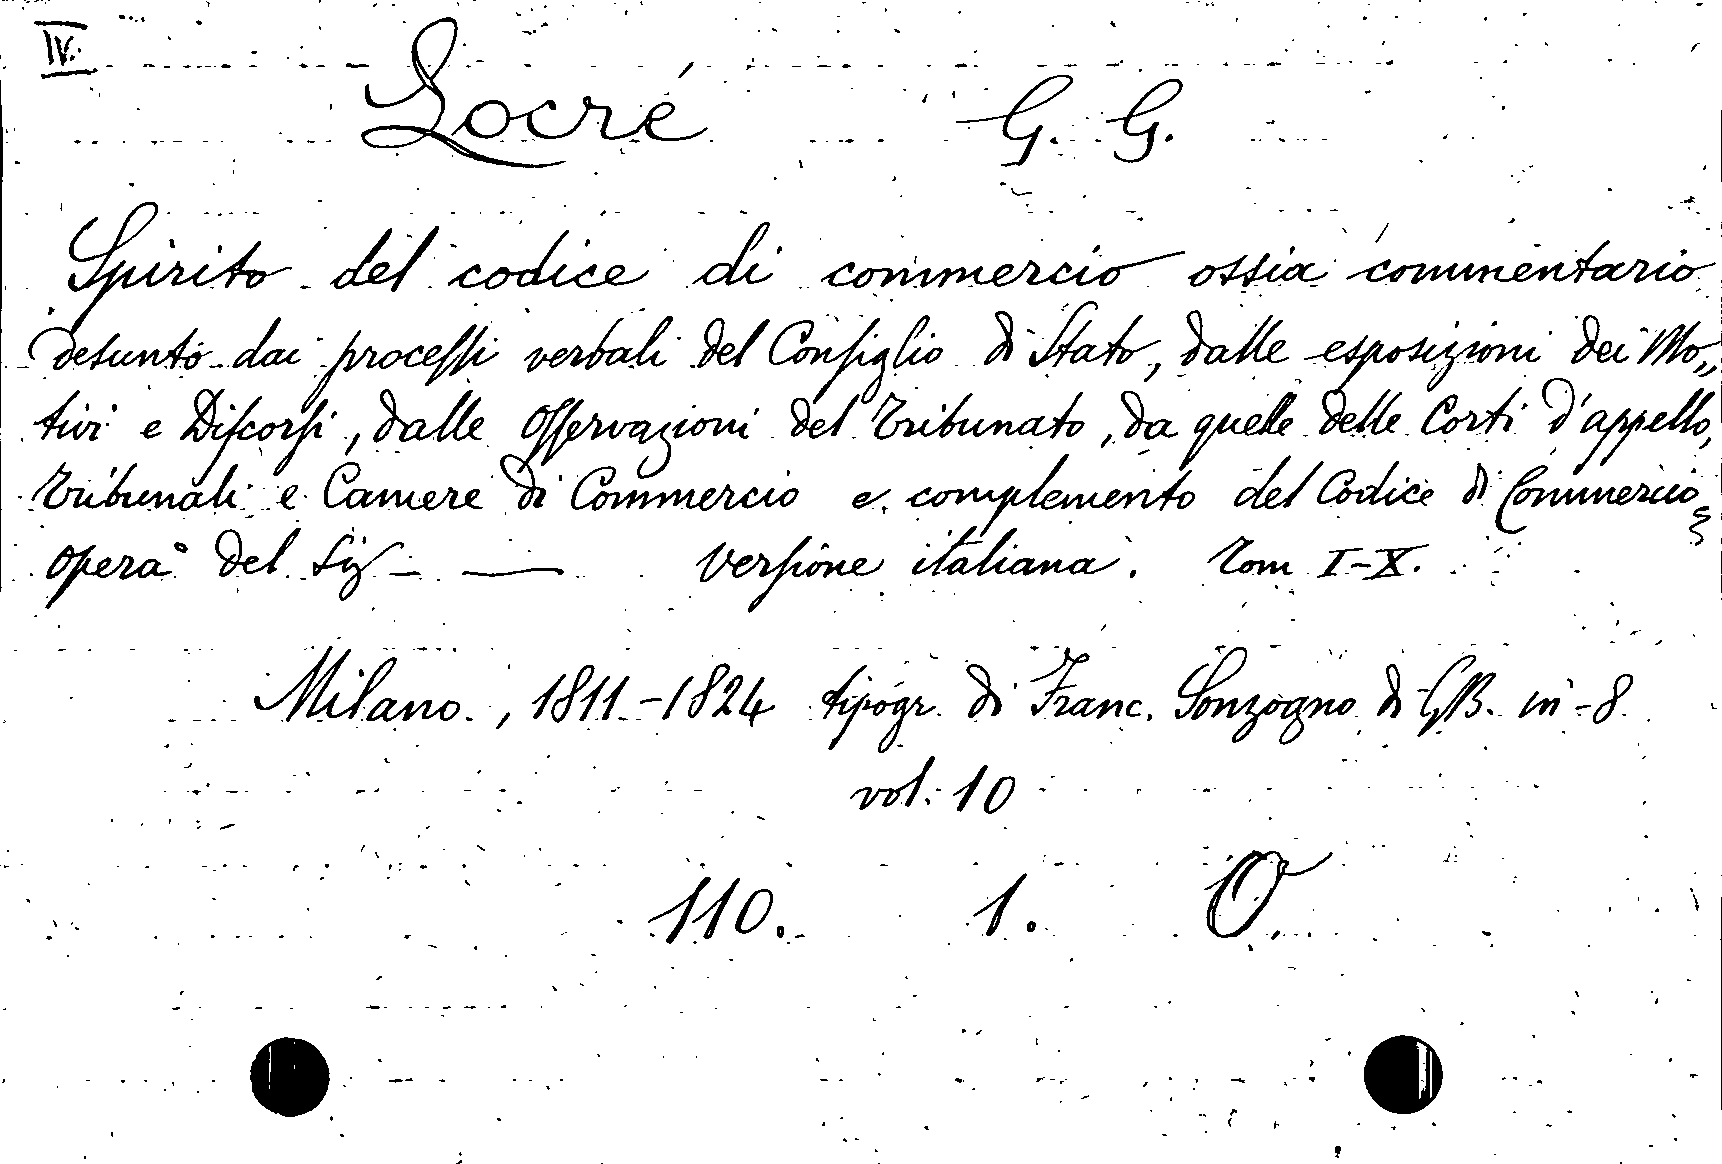 IV.
Locré G. G.
Spirito del codice di commercio ossia commentario
desunto dai processi verbali del Consiglio di Stato, dalle esposizioni dei Mo„
tivi e Discorsi, dalle Osservazioni del Tribunato, da quelle delle Corti d'appello,
Tribunali e Camere di Commercio e complemento del Codice di Commercio
opera del Sig — Versione italiana. Tom I-X.
Milano, 1811-1824 tipogr. di Franc. Sonzogno di GB. in-8
vol. 10
110. 1. O.